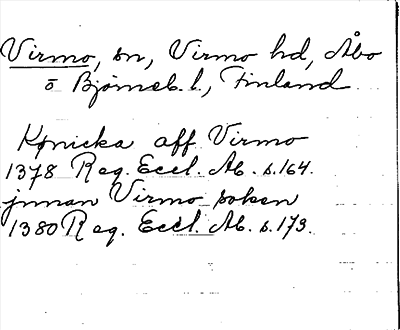 Virmo, sn, Virmo hd, Åbo
o Björneb. l., Finland
Kpnicka aff Virmo
1378 Reg. Eccl. Ab. s.164.
jnnan Virmo soken
1380 Reg. Eccl. Ab. s.173.